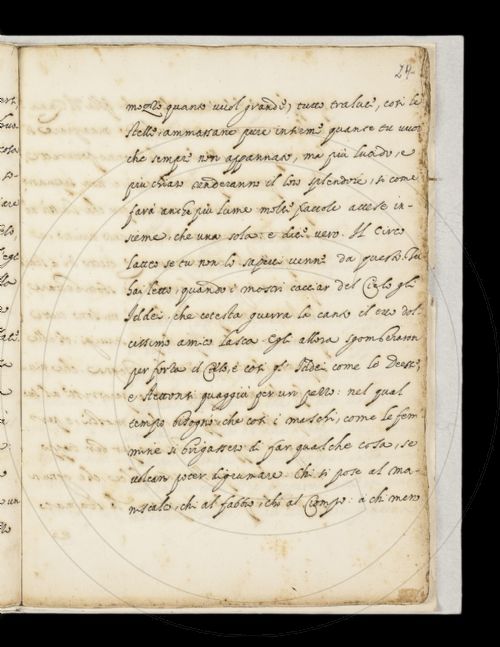 24
mozzo quanto vuol grande, tutto traluce, così le
stelle, ammassane pure insieme quante tu vuoi
che sempre non appannano, ma più lucido, e
più chiaro renderanno il loro splendore, si come
farà anche più lume molte faccole accese in-
sieme, che una sola: e dice vero. Il Circo
latteo se tu non lo sapessi venne da questo. Tu
hai letto, quando i mostri cacciar del Cielo gli
Iddei, che cotesta guerra la cantò il tuo dol-
cissimo amico Lasca. Egli allora sgomberaron
per forza il Cielo, e così gl' Iddei come le Deesse,
e stettonsi quaggiù per un pezzo: nel qual
tempo bisognò che così i maschi, come le fem
mine si brigassero di far qualche cosa, se
volean poter digrumare. Chi si pose al Ma-
niscalco, chi al fabbro, chi al : a chi meno